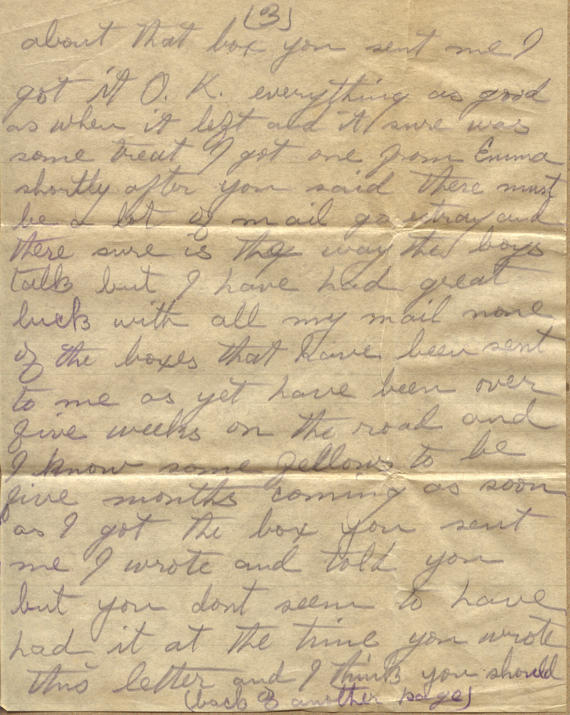 (3)
about that box you sent me I
got it O. K. everything as good
as when it left and it sure was
some treat I got one from Emma
shortly after you said there must
be a lot of mail go astray and
there sure is the way the boys
talk but I have had great
luck with all my mail none
of the boxes that have been sent
to me as yet have been over
five weeks on the road and
I know some fellows to be
five months coming as soon
as I got the box you sent
me I wrote and told you
but you dont seem to have
had it at the time you wrote
this letter and I think you should
(back of another page)